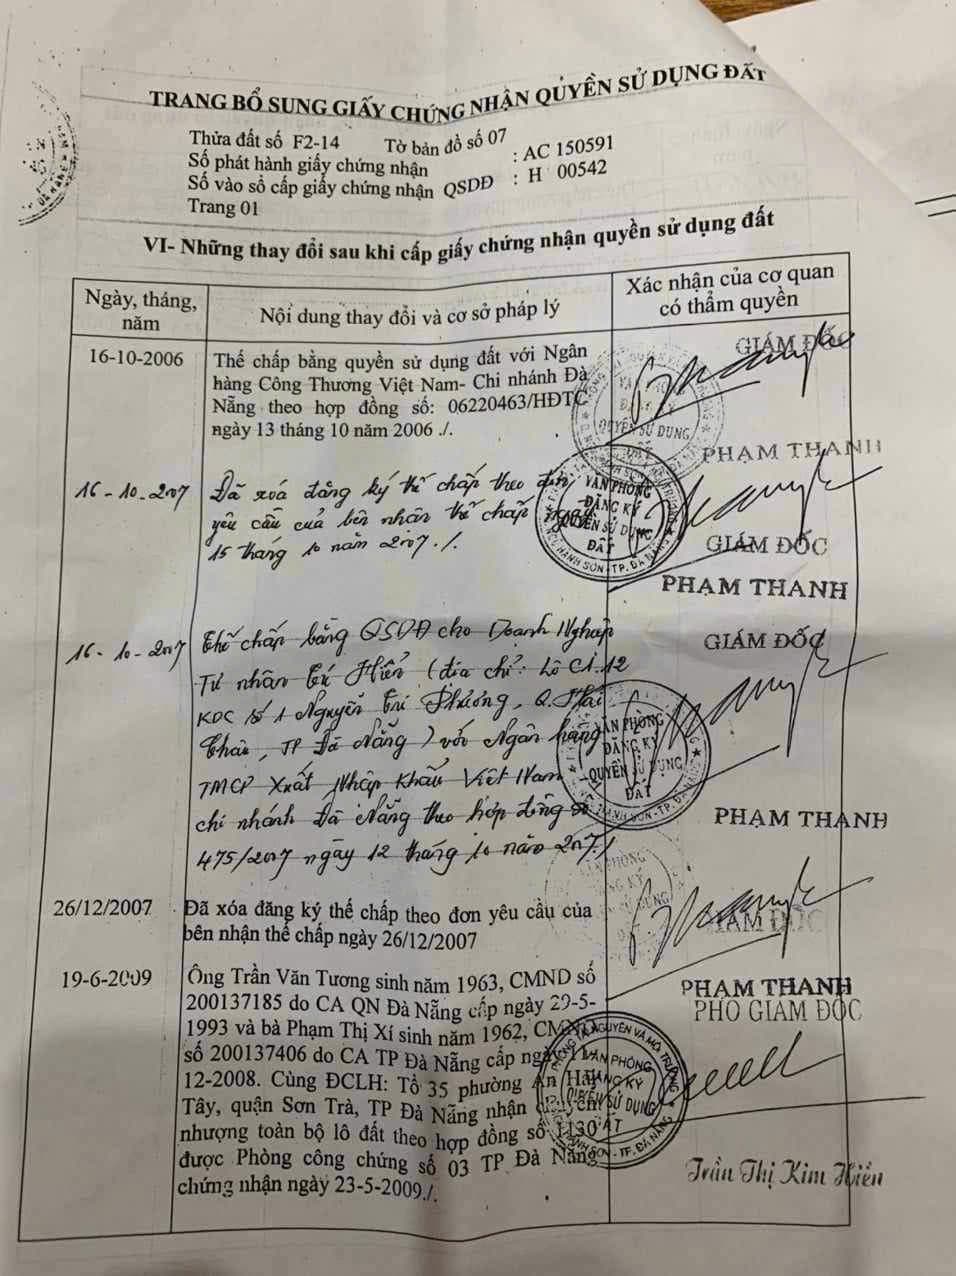 TRANG BỔ SUNG GIẤY CHỨNG NHẬN QUYỀN SỬ DỤNG ĐẤT
Thửa đất số F2-14 Tờ bản đồ số 07
Số phát hành giấy chứng nhận : AC 150591
Số vào sổ cấp giấy chứng nhận QSDĐ : H 00542
Trang 01
VI- Những thay đổi sau khi cấp giấy chứng nhận quyền sử dụng đất
Ngày, tháng, năm
Nội dung thay đổi và cơ sở pháp lý
Xác nhận của cơ quan có thẩm quyền
16-10-2006
Thế chấp bằng quyền sử dụng đất với Ngân
hàng Công Thương Việt Nam- Chi nhánh Đà
Nẵng theo hợp đồng số: 06220463/HĐTC
ngày 13 tháng 10 năm 2006 ./.
GIÁM ĐỐC
PHẠM THANH
16-10-2007
Đã xoá đăng ký thế chấp theo đơn
yêu cầu của bên nhận thế chấp ngày
15 tháng 10 năm 2007./.
VĂN PHÒNG
ĐĂNG KÝ
QUYỀN SỬ DỤNG
ĐẤT
GIÁM ĐỐC
PHẠM THANH
16-10-2007
Thế chấp bằng QSDĐ cho Doanh Nghiệp
Tư nhân Trí Hiển (địa chỉ: Lô C1.12
KDC số 1 Nguyễn Tri Phương, Q. Hải
Châu, TP Đà Nẵng) với Ngân hàng
TMCP Xuất Nhập Khẩu Việt Nam
chi nhánh Đà Nẵng theo hợp đồng số
475/2007 ngày 12 tháng 10 năm 2007./
GIÁM ĐỐC
VĂN PHÒNG
ĐĂNG KÝ
QUYỀN SỬ DỤNG
ĐẤT
PHẠM THANH
26/12/2007
Đã xóa đăng ký thế chấp theo đơn yêu cầu của
bên nhận thế chấp ngày 26/12/2007
GIÁM ĐỐC
PHẠM THANH
19-6-2009
Ông Trần Văn Tương sinh năm 1963, CMND số
200137185 do CA QN Đà Nẵng cấp ngày 29-5-
1993 và bà Phạm Thị Xí sinh năm 1962, CMND
số 200137406 do CA TP Đà Nẵng cấp ngày 11-
12-2008. Cùng ĐCLH: Tổ 35 phường An Hải
Tây, quận Sơn Trà, TP Đà Nẵng nhận chuyển
nhượng toàn bộ lô đất theo hợp đồng số 1130
được Phòng công chứng số 03 TP Đà Nẵng
chứng nhận ngày 23-5-2009./.
PHÓ GIÁM ĐỐC
VĂN PHÒNG
ĐĂNG KÝ
QUYỀN SỬ DỤNG
ĐẤT
Trần Thị Kim Hiền